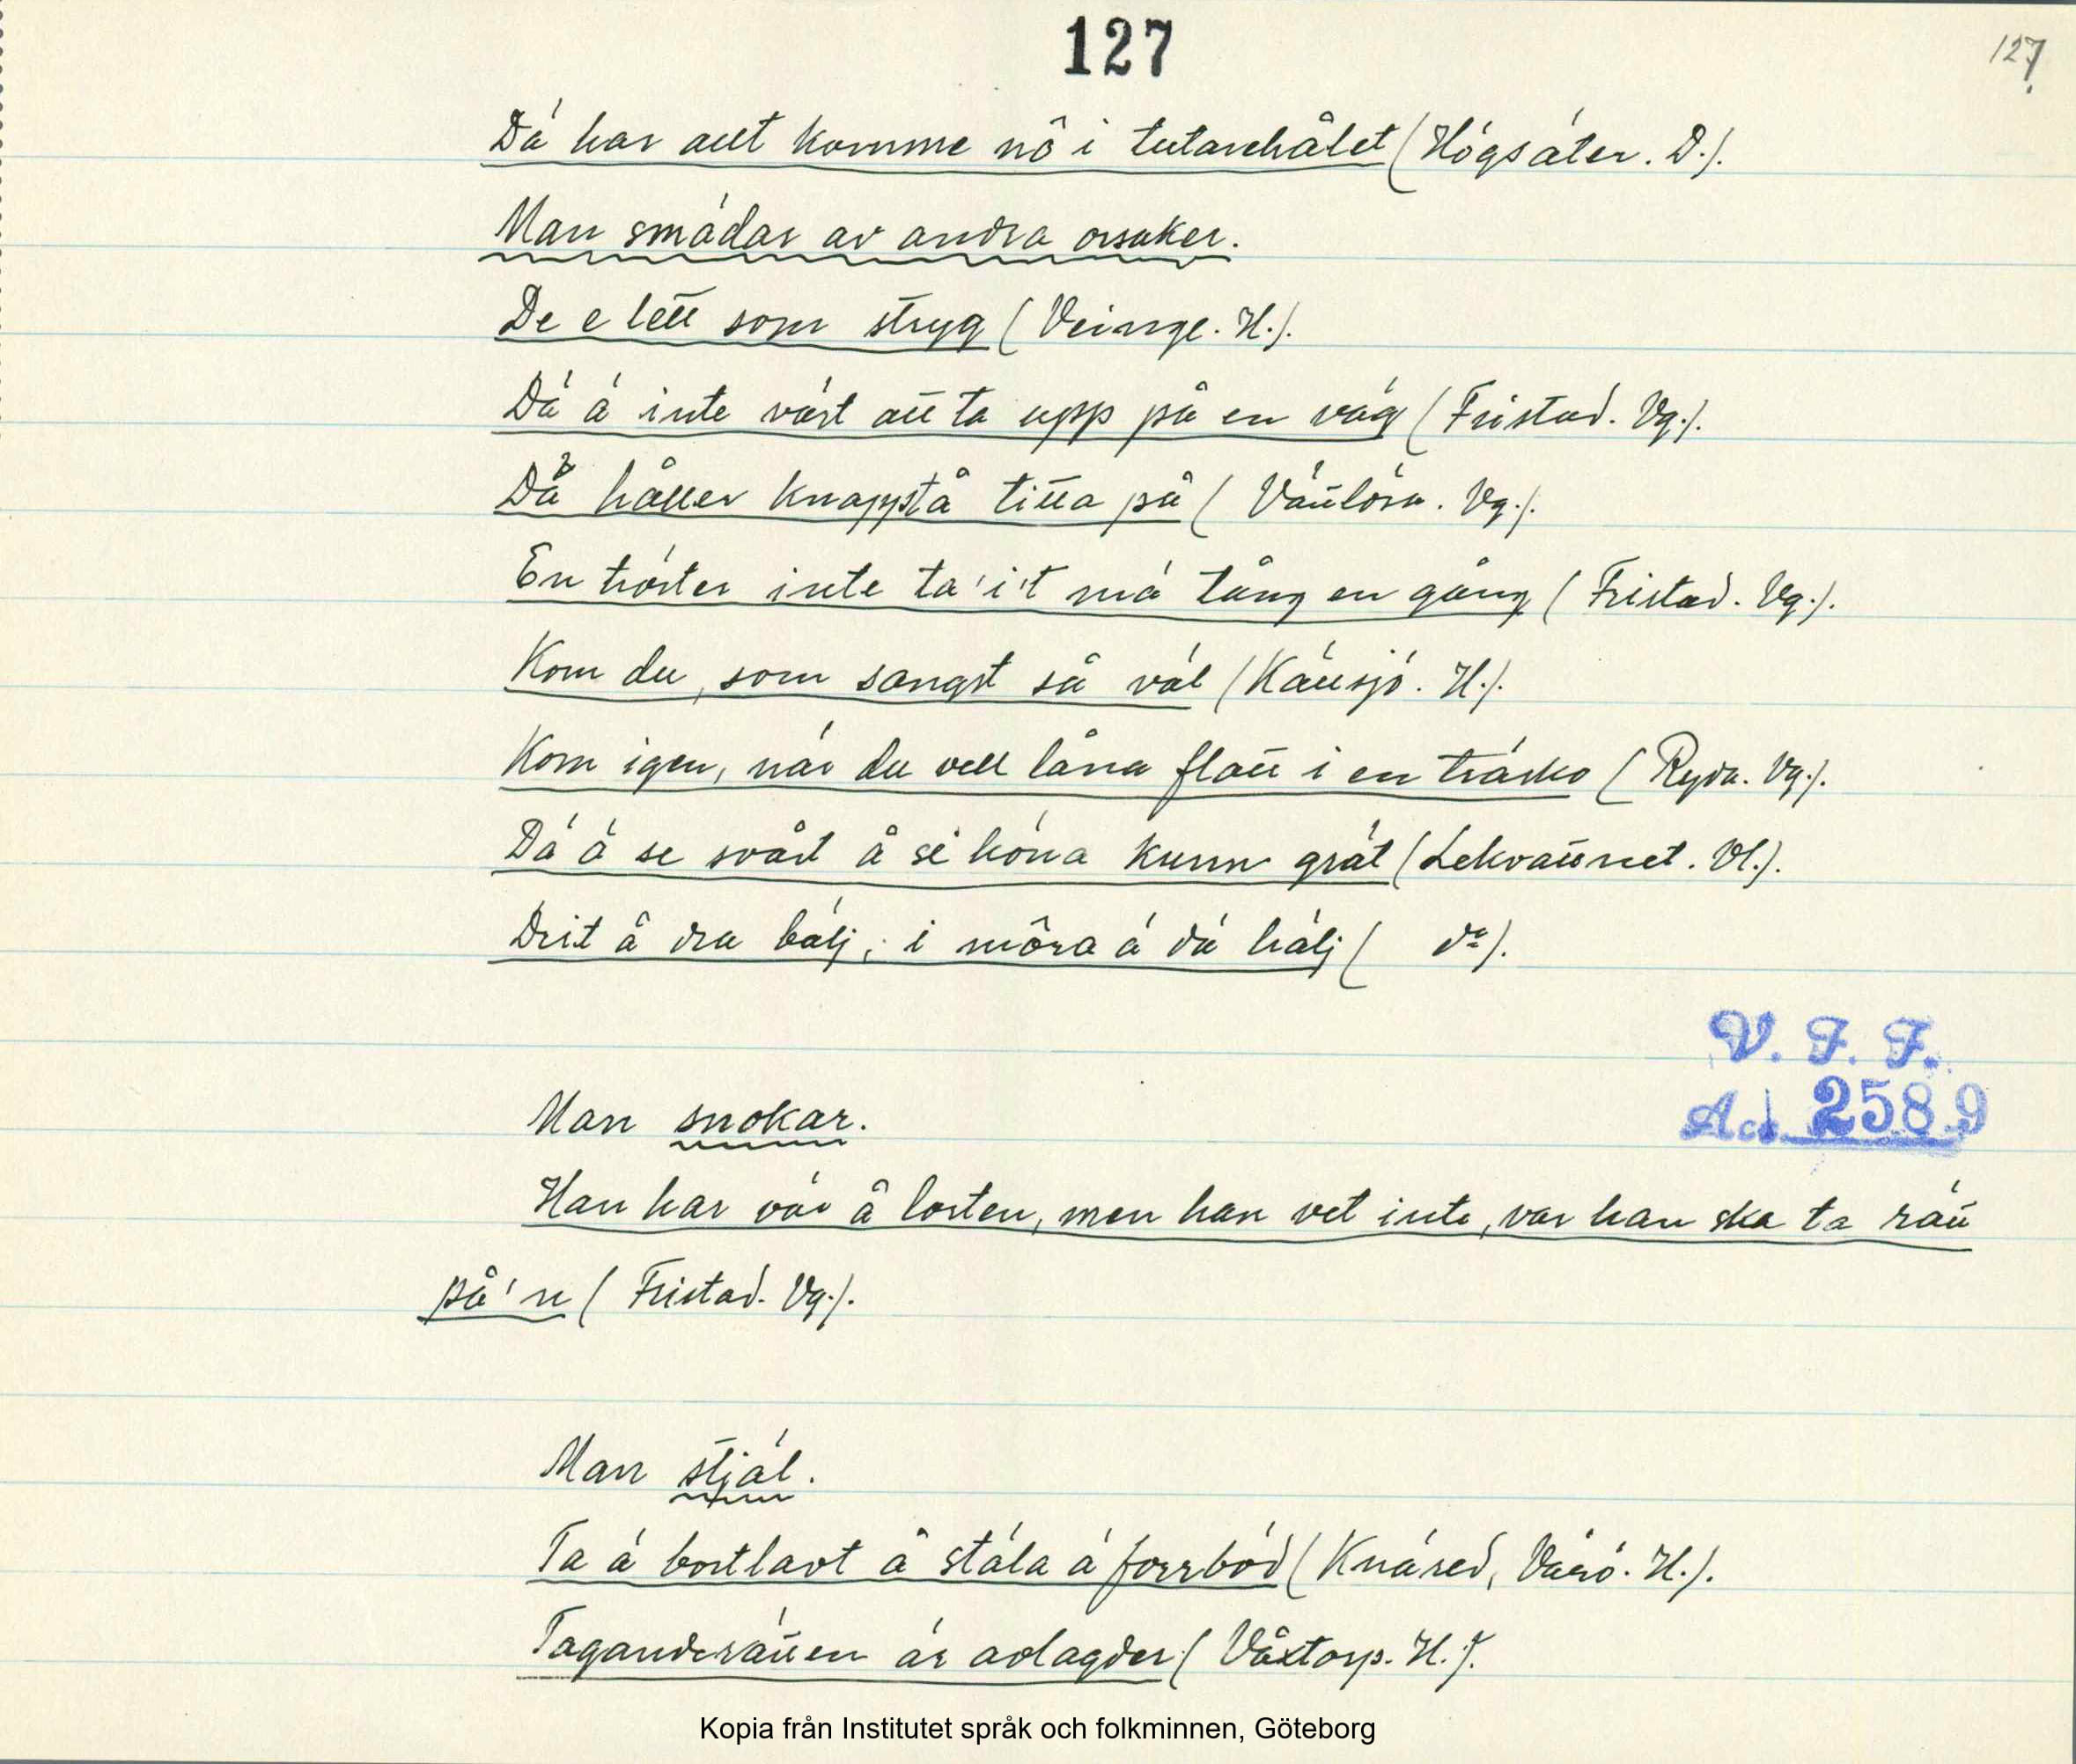 127
127
Dä har allt komme nô i tutarehålet (Högsäter. D.).
Man smädar av andra orsaker.
De e lett som stryg (Veinge. H.).
Dä ä inte värt att ta upp på en väg (Fristad. Vg.).
Dä håller knappst å titta på (Vättlösa. Vg.).
En tröster inte ta 'i't mä tång en gång (Fristad. Vg.).
Kom du, som sangst så väl (Källsjö. H.).
Kom igen, när du vell låna flott i en träsko (Ryda. Vg.).
Dä ä se svårt å si höna kunn grät (Lekvattnet. Vl.).
Drit å dra bälj, i môra ä dä hälj ( do).
V. F. F.
Acc. 2589
Man snokar.
Han har vär å lorten, men han vet inte, var han ska ta rätt
på 'n (Fristad. Vg.).
Man stjäl.
Ta ä bortlavt å stäla ä forrböd (Knäred, Värö. H.).
Taganderätten är avlagder (Våxtorp. H.).
Kopia från Institutet språk och folkminnen, Göteborg